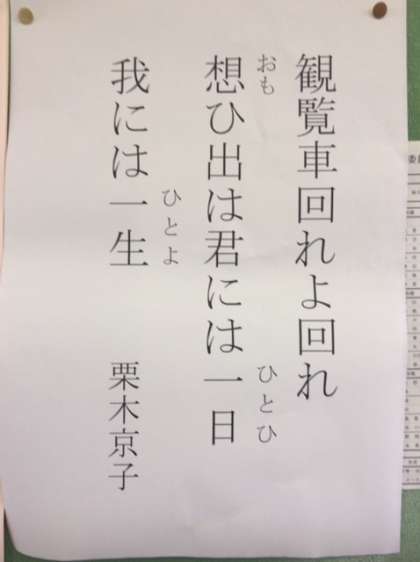 観覧車回れよ回れ
想ひ出は君には一日
おも
ひとひ
我には一生
ひとよ
栗木京子